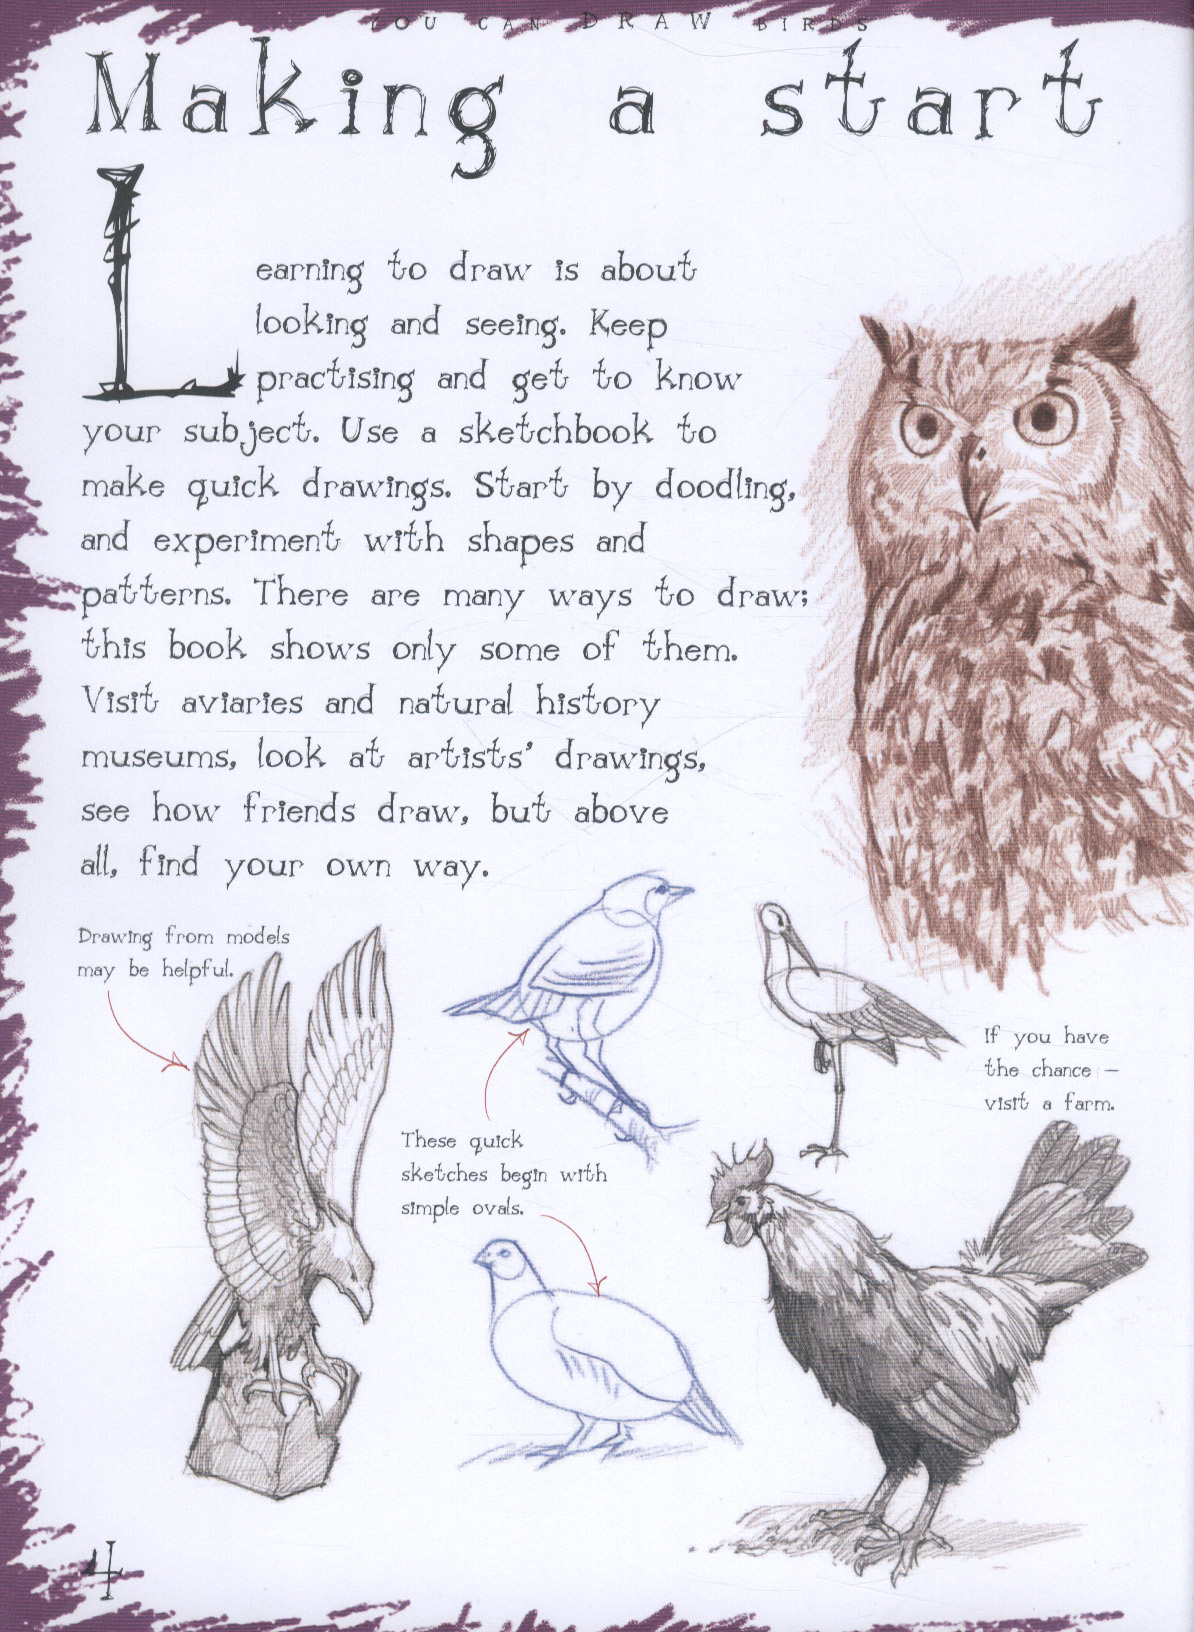 YOU CAN DRAW BIRDS
Making a start
Learning to draw is about
looking and seeing. Keep
practising and get to know
your subject. Use a sketchbook to
make quick drawings. Start by doodling,
and experiment with shapes and
patterns. There are many ways to draw;
this book shows only some of them.
Visit aviaries and natural history
museums, look at artists' drawings,
see how friends draw, but above
all, find your own way.
Drawing from models
may be helpful.
If you have
the chance –
visit a farm.
These quick
sketches begin with
simple ovals.
4